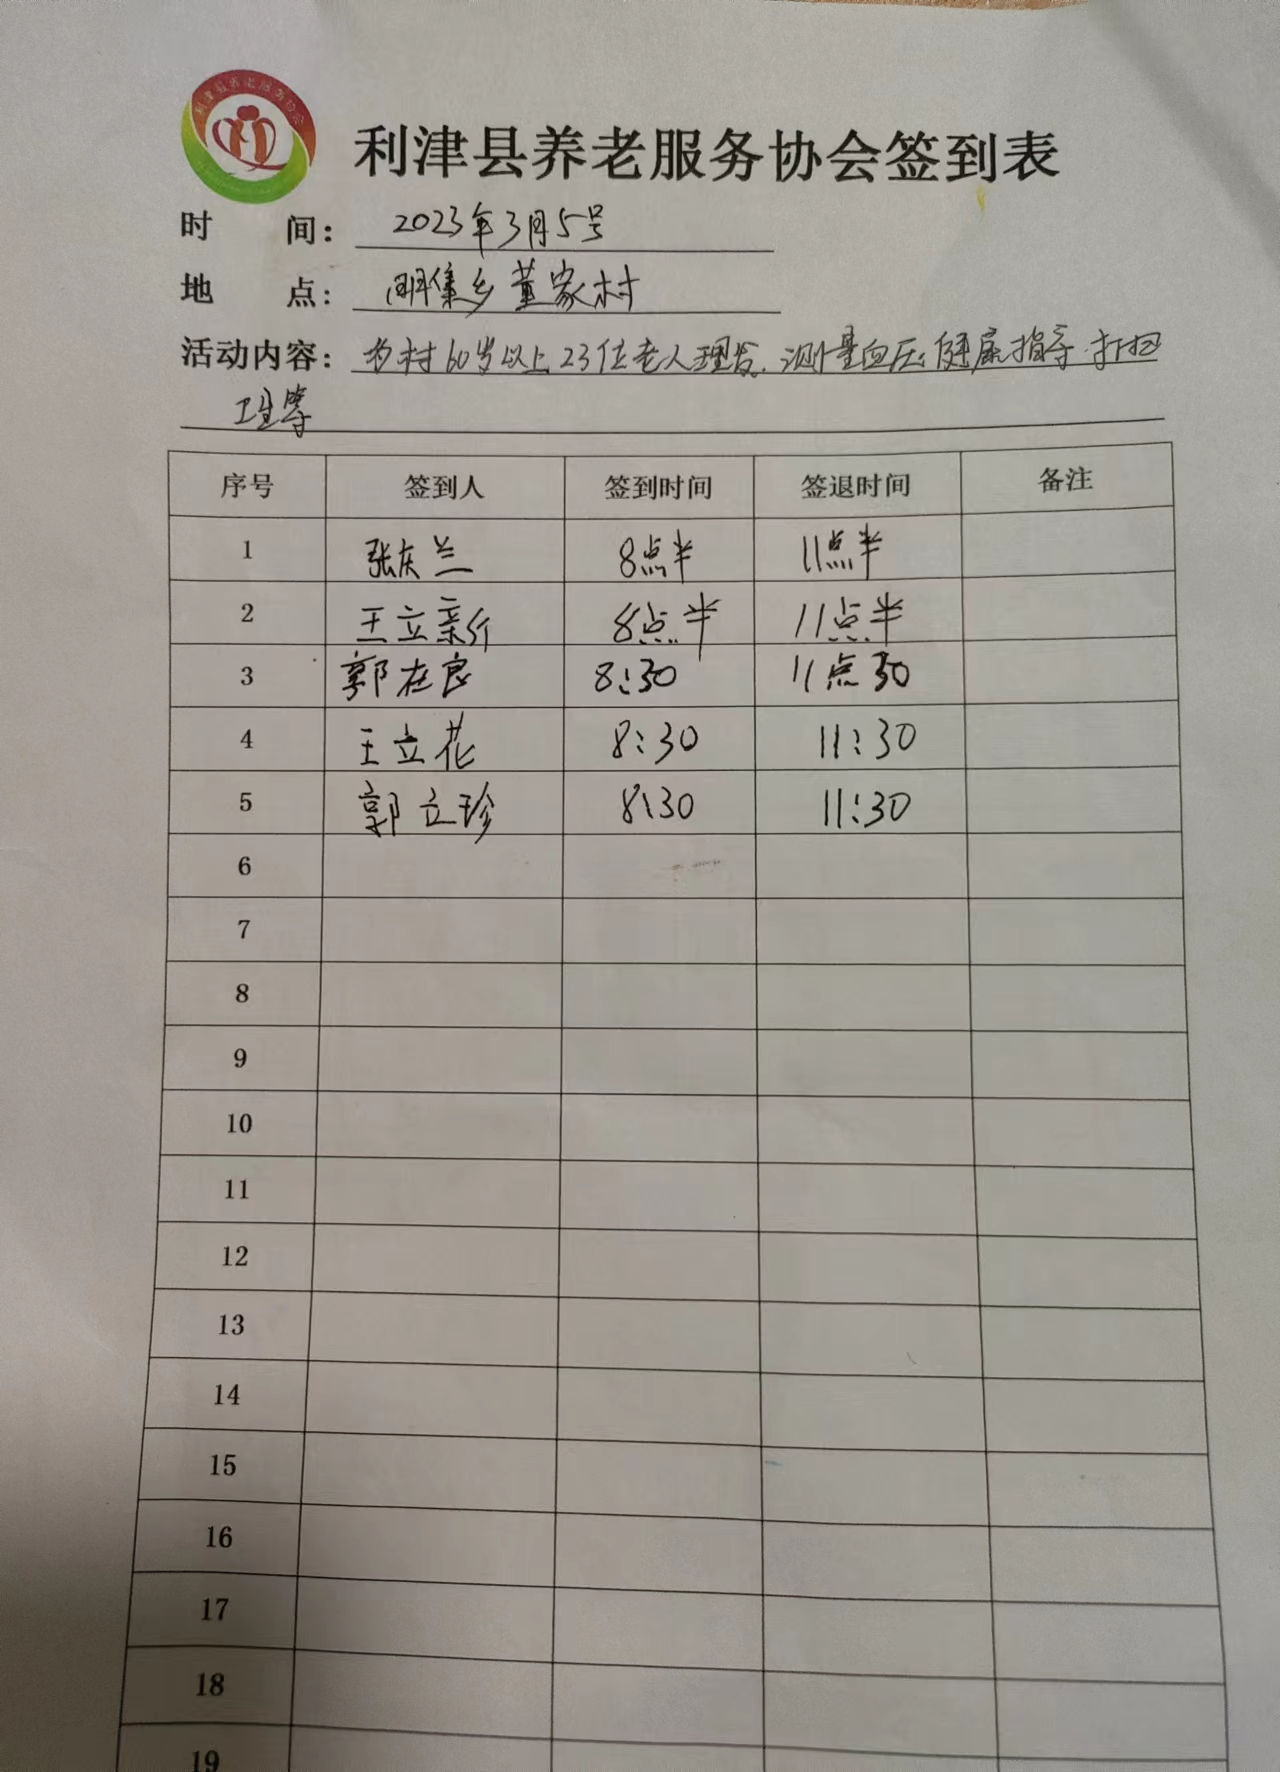 利津县养老服务协会
利津县养老服务协会签到表
时 间: 2023年3月5号
地 点: 明集乡董家村
活动内容: 为村60岁以上23位老人理发.测量血压.健康指导.打扫
卫生等
序号 签到人 签到时间 签退时间 备注
1 张庆兰 8点半 11点半
2 王立新 8点半 11点半
3 郭在良 8:30 11点30
4 王立花 8:30 11:30
5 郭立珍 8:30 11:30
6
7
8
9
10
11
12
13
14
15
16
17
18
19